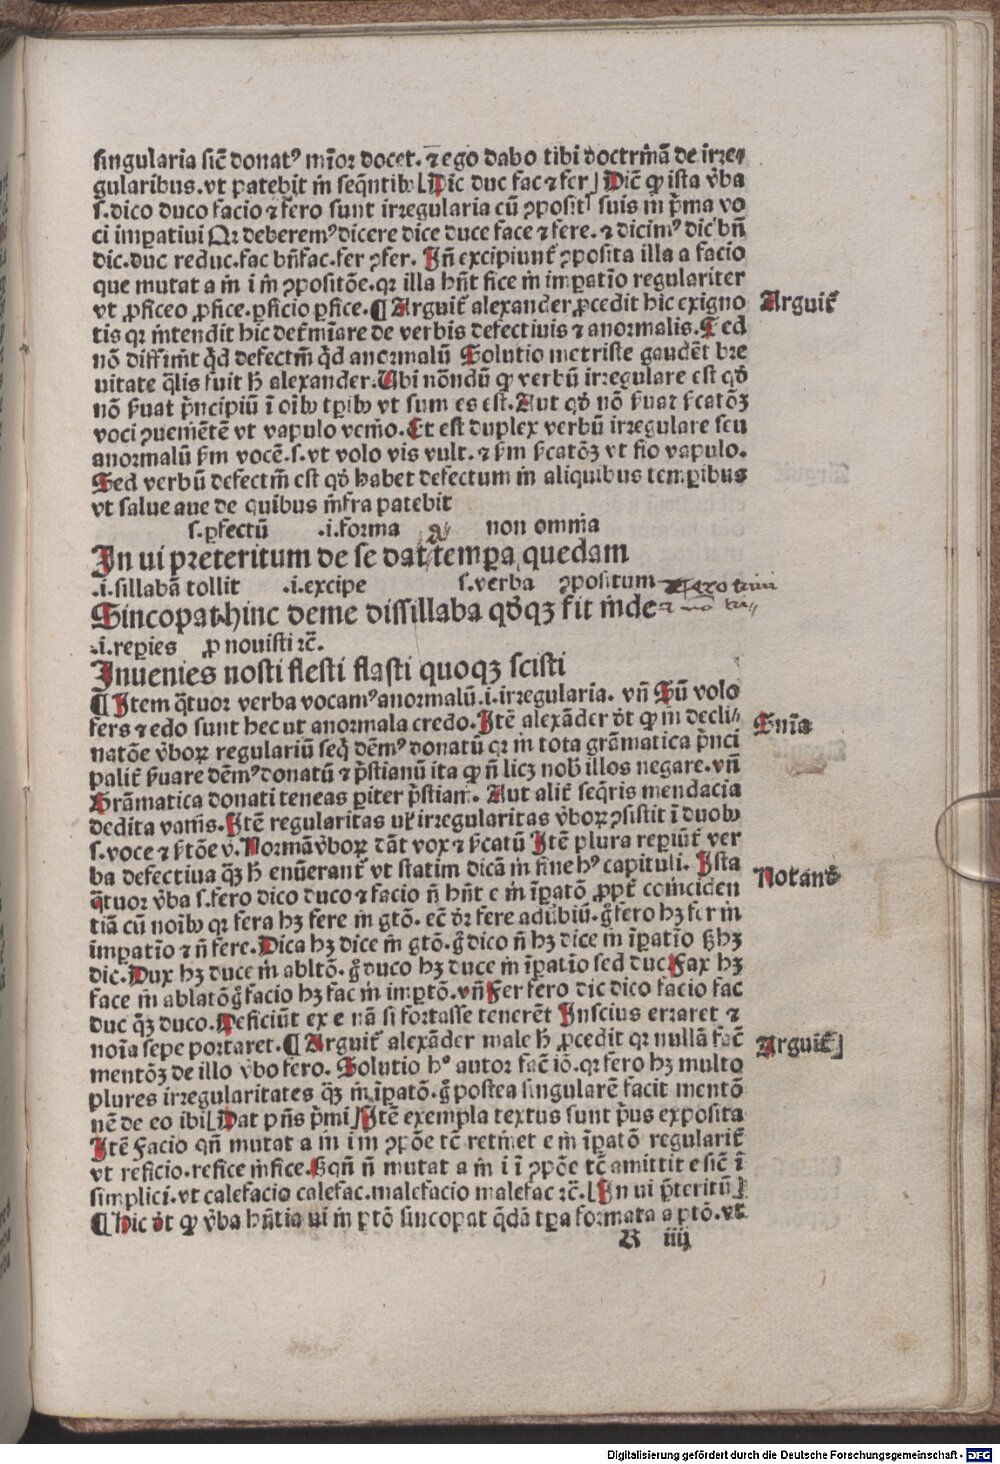 singularia sic̄ donatꝰ mīor docet. ⁊ ego dabo tibi doctrinā de irre⸗
gularibus. vt patebit in seq̄ntibꝰ [Dic duc fac ⁊ fer] Dic̄ ꝙ ista v̄ba
s. dico duco facio ⁊ fero sunt irregularia cū ꝯposit suis in p̄ma vo
ci imꝑatiui Qꝛ deberemꝰ dicere dice duce face ⁊ fere. ⁊ dicimꝰ dic bn̄
dic. duc reduc. fac bn̄fac. fer ꝯfer. Jn̄ excipiunt̄ ꝯposita illa a facio
que mutat a in i in ꝯpositōe. qꝛ illa hn̄t fice in imꝑatīo regulariter
vt ꝓficeo ꝓfice. ꝑficio ꝑfice. ¶ Arguit̄ alexander ꝓcedit hic exigno
tis qꝛ intendit hic det̄mīare de verbis defectiuis ⁊ anormalis. Sed
nō diffinit q̄d defectiū q̄d anormalū Solutio metriste gaudēt bre
uitate q̄lis fuit h̄ alexander. Ubi nōndū ꝙ verbū irregulare est qd̄
nō s̄uat p̄ncipiū ī oībꝰ tꝑibꝰ vt sum es est. Aut qd̄ nō s̄uat s̄catōꝫ
voci ꝯueniētē vt vapulo venio. Et est duplex verbū irregulare seu
anormalū s̄m vocē. s. vt volo vis vult. ⁊ s̄m s̄catōꝫ vt fio vapulo.
Sed verbū defectiū est qd̄ habet defectum in aliquibus temꝑibus
vt salue aue de quibus infra patebit
s. ꝑfectū .i. forma non omnia
Jn ui preteritum de se dat temꝑa quedam
.i. sillabā tollit .i. excipe s. verba ꝯpositum
Sincopat hinc deme dissillaba qd̄qꝫ fit inde
.i. reꝑies ꝓ nouisti ⁊c̄.
Jnuenies nosti flesti flasti quoqꝫ scisti
¶ Jtem q̄tuor verba vocamꝰ anormalū. i. irregularia. vn̄ Sū volo
fers ⁊ edo sunt hec ut anormala credo. Jtē alexāder d̄t ꝙ in decli⸗
natōe v̄boꝝ regulariū seq̄ dēmꝰ donatū qꝛ in tota grāmatica p̄nci
palit̄ s̄uare dēmꝰ donatū ⁊ p̄stianū ita ꝙ n̄ licꝫ nob̄ illos negare. vn̄
Grāmatica donati teneas ꝑiter p̄stiani. Aut alit̄ seq̄ris mendacia
dedita vanis. Jtē regularitas ul̄ irregularitas v̄boꝝ ꝯsistit ī duobꝰ
s. voce ⁊ s̄tōe v̄. Normā v̄boꝝ dāt vox ⁊ s̄catū Jtē plura reꝑiūt̄ ver
ba defectiua q̄ꝫ h̄ enūerant̄ vt statim dicā in fine hꝰ capituli. Jsta
q̄tuor v̄ba s. fero dico duco ⁊ facio n̄ hn̄t e in īꝑatō ꝓpt̄ coinciden
tiā cū noībꝰ qꝛ fera hꝫ fere in gtō. ec̄ d̄r fere adūbiū. g̊ fero hꝫ fer in
īmꝑatīo ⁊ n̄ fere. Dica hꝫ dice in gtō. g̊ dico n̄ hꝫ dice in īꝑatīo sꝫ hꝫ
dic. Dux hꝫ duce in abltō. g̊ duco hꝫ duce in īꝑatīo sed duc. Fax hꝫ
face in ablatō g̊ facio hꝫ fac in imꝑtō. vn̄ Fer fero dic dico facio fac
duc q̄ꝫ duco. Deficiūt ex e nā si fortasse tenerēt Jnscius erraret ⁊
noīa sepe portaret. ¶ Arguit̄ alexāder male h̄ ꝓcedit qꝛ nullā fac̄
mentōꝫ de illo v̄bo fero. Solutio hꝰ autor fac̄ iō. qꝛ fero hꝫ multo
plures irregularitates q̄ꝫ in īꝑatō. g̊ postea singularē facit mentō
nē de eo ibi [Dat pn̄s p̄mi] Jtē exempla textus sunt p̄us exposita
Jtē Facio qn̄ mutat a in i in ꝯpōe tc̄ retinet e in īꝑatō regularit̄
vt reficio. refice infice. Sꝫ qn̄ n̄ mutat a in i ī ꝯpōe tc̄ amittit e sic̄ ī
simplici. vt calefacio calefac. malefacio malefac ⁊c̄. [Jn ui p̄teritū]
¶ Hic d̄t ꝙ v̄ba hn̄tia ui in p̄tō sincopat q̄dā tꝑa formata a p̄tō. vt
R iiij
Arguit̄
Snīa
Notand̄
Arguit̄
Digitalisierung gefördert durch die Deutsche Forschungsgemeinschaft - DFG